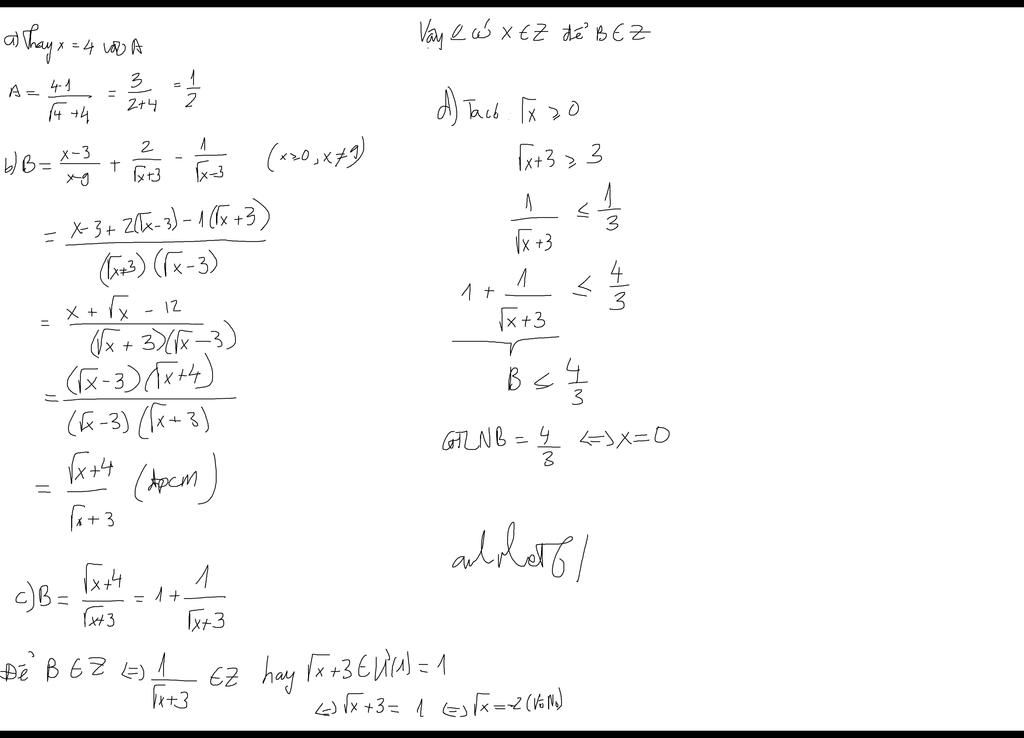 a) Thay x = 4 vào A
A = \frac{4-1}{\sqrt{4}+4} = \frac{3}{2+4} = \frac{1}{2}
b) B = \frac{x-3}{x-9} + \frac{2}{\sqrt{x}+3} - \frac{1}{\sqrt{x}-3} (x≥0, x≠9)
= \frac{x-3+2(\sqrt{x}-3)-1(\sqrt{x}+3)}{(\sqrt{x}+3)(\sqrt{x}-3)}
= \frac{x+\sqrt{x}-12}{(\sqrt{x}+3)(\sqrt{x}-3)}
= \frac{(\sqrt{x}-3)(\sqrt{x}+4)}{(\sqrt{x}-3)(\sqrt{x}+3)}
= \frac{\sqrt{x}+4}{\sqrt{x}+3} (đpcm)
c) B = \frac{\sqrt{x}+4}{\sqrt{x}+3} = 1 + \frac{1}{\sqrt{x}+3}
Để B ∈ Z ⇔ \frac{1}{\sqrt{x}+3} ∈ Z hay \sqrt{x}+3 ∈ Ư(1) = 1
⇔ \sqrt{x}+3 = 1 ⇔ \sqrt{x} = -2 (Vô No)
Vậy có x ∈ Z để B ∈ Z
d) Ta có: \sqrt{x} ≥ 0
\sqrt{x}+3 ≥ 3
\frac{1}{\sqrt{x}+3} ≤ \frac{1}{3}
1 + \frac{1}{\sqrt{x}+3} ≤ \frac{4}{3}
B ≤ \frac{4}{3}
GTLN B = \frac{4}{3} ⇔ x = 0